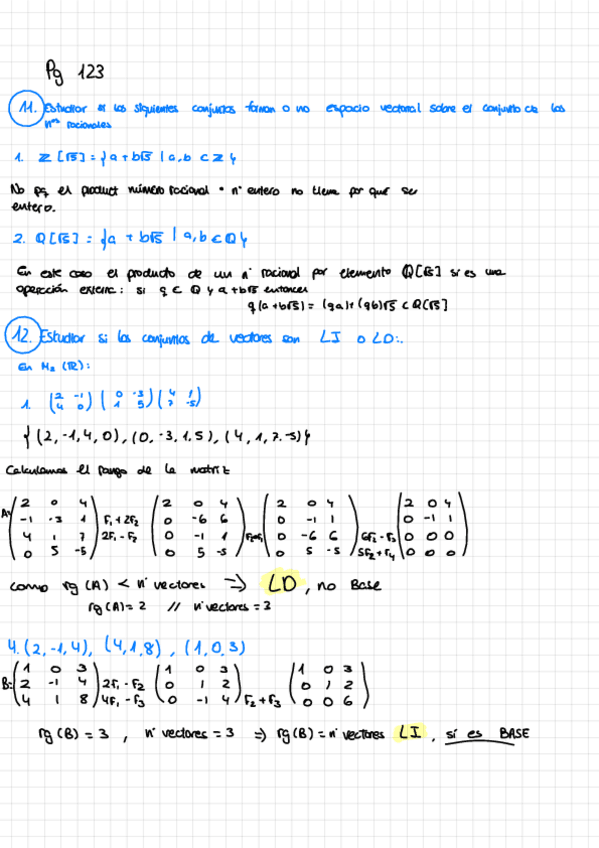 Pg 123
11. Estudiar si los siguientes conjuntos forman o no espacio vectorial sobre el conjunto de los
nos racionales
1. Z[√5] = {a + b√5 | a, b ⊂ Z}
No pq el product número racional · nº entero no tiene por que ser
entero.
2. Q[√5] = {a + b√5 | a, b ∈ Q}
En este caso el producto de un nº racional por elemento Q[√5] si es una
operación externa: si q ⊂ Q y a + b√5 entonces
q(a + b√5) = (qa) + (qb)√5 ⊂ Q[√5]
12. Estudiar si los conjuntos de vectores son LI o LD:.
En M2 (R):
1. (2 -1 / 4 0) (0 -3 / 1 5) (4 1 / 7 -5)
{(2, -1, 4, 0), (0, -3, 1, 5), (4, 1, 7, -5)}
Calculamos el rango de la matriz
A= (2 0 4 / -1 -3 1 / 4 1 7 / 0 5 -5) F1 + 2F2 2F1 - F2 (2 0 4 / 0 -6 6 / 0 -1 1 / 0 5 -5) (2 0 4 / 0 -1 1 / 0 -6 6 / 0 5 -5) 6F2 - F3 5F2 + F4 (2 0 4 / 0 -1 1 / 0 0 0 / 0 0 0)
como rg (A) < nº vectores => LD, no Base
rg(A) = 2 // nº vectores = 3
4. (2, -1, 4), (4, 1, 8), (1, 0, 3)
B= (1 0 3 / 2 -1 4 / 4 1 8) 2F1 - F2 4F1 - F3 (1 0 3 / 0 1 2 / 0 -1 4) F2 + F3 (1 0 3 / 0 1 2 / 0 0 6)
rg(B) = 3, nº vectores = 3 => rg(B) = nº vectores LI, sí es BASE